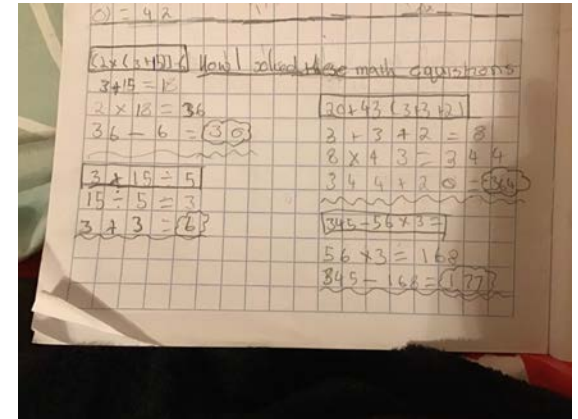 = 42
How I solved these math equistions
3+15 = 18
2 × 18 = 36
36 - 6 = 30
3 + 15 ÷ 5
15 ÷ 5 = 3
3 + 3 = 6
20+43 (3+3+2)
3 + 3 + 2 = 8
8 × 43 = 344
344 + 20 = 364
345-56×3=
56 ×3 = 168
345 - 168 = 177